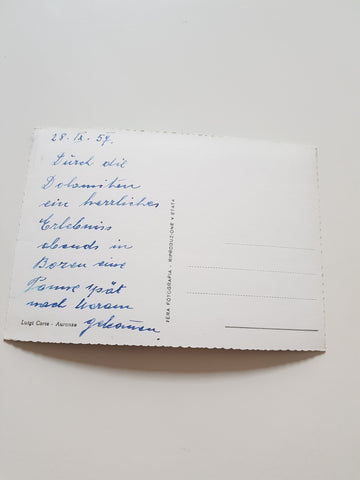 28. IX. 57.
Durch die
Dolomiten
ein herrliches
Erlebniss
abends in
Bozen eine
Panne spät
nach Meran
gekommen.
Luigi Corte - Auronzo
VERA FOTOGRAFIA - RIPRODUZIONE VIETATA